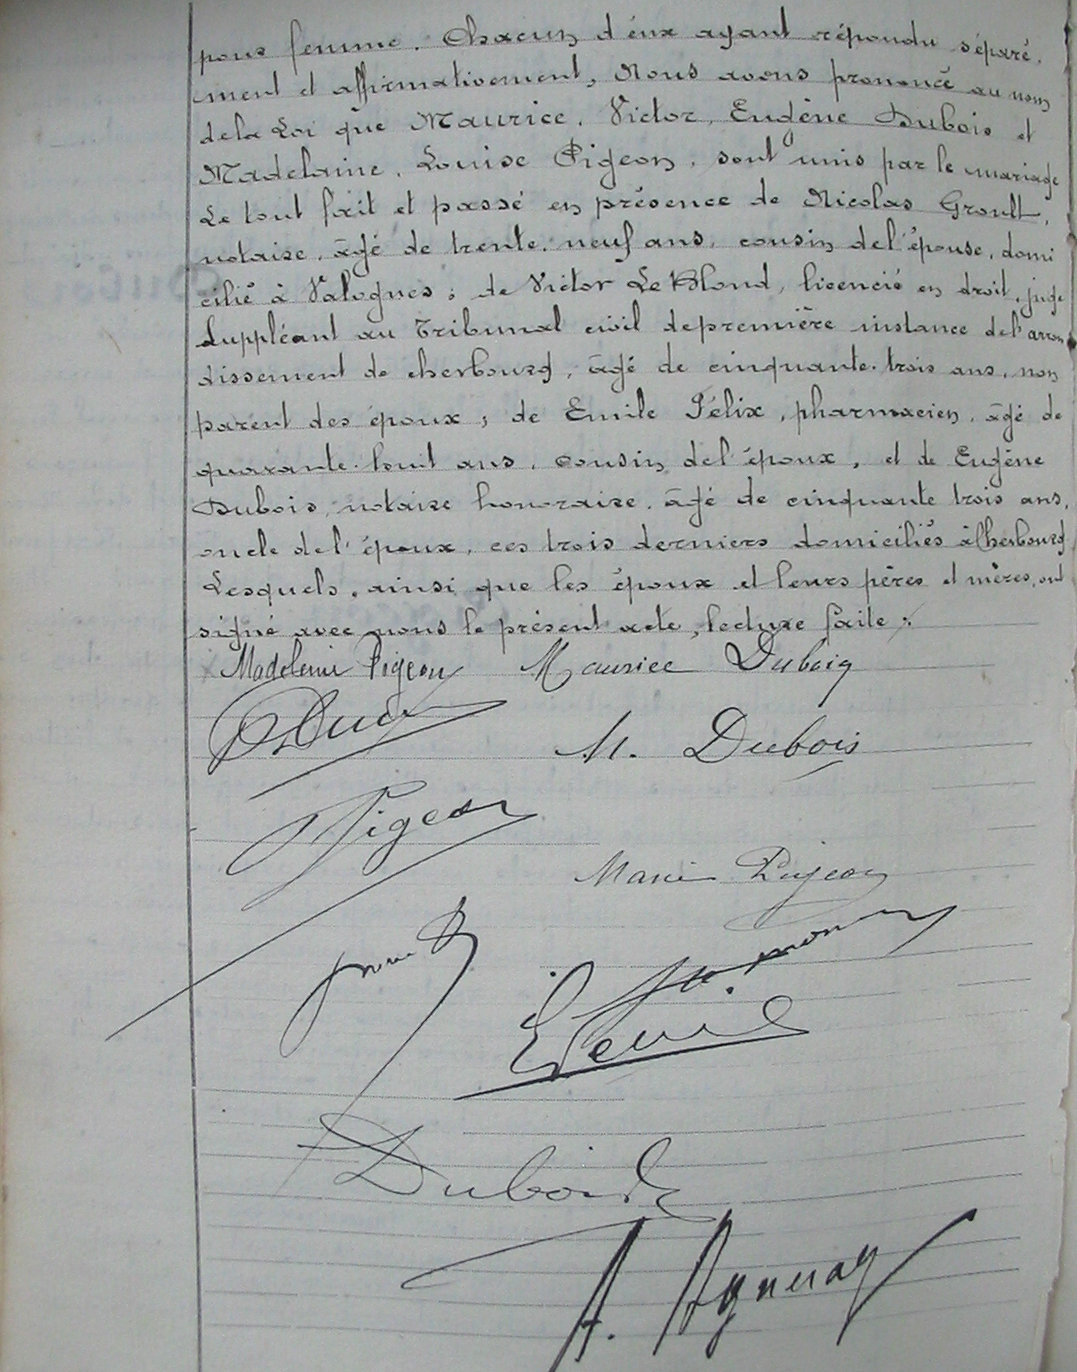 pour femme. Chacun d'eux ayant répondu séparé,
ment et affirmativement, Nous avons prononcé au nom
de la Loi que Maurice, Victor, Eugène Dubois et
Madelaine, Louise Pigeon, sont unis par le mariage
Le tout fait et passé en présence de Nicolas Groult,
notaire, âgé de trente-neuf ans, cousin de l'épouse, domi
cilié à Valognes; de Victor Le Blond, licencié en droit, juge
Suppléant au Tribunal civil de première instance de l'arron
dissement de cherbourg, âgé de cinquante-trois ans, non
parent des époux; de Emile Félix, pharmacien, âgé de
quarante-huit ans, cousin de l'époux, et de Eugène
Dubois, notaire honoraire, âgé de cinquante trois ans,
oncle de l'époux, ces trois derniers domiciliés à Cherbourg
Lesquels, ainsi que les époux et leurs pères et mères, ont
signé avec nous le présent acte, lecture faite.
Madeleine Pigeon Maurice Dubois
M. Dubois
Pigeon
Marie Pigeon
Dubois